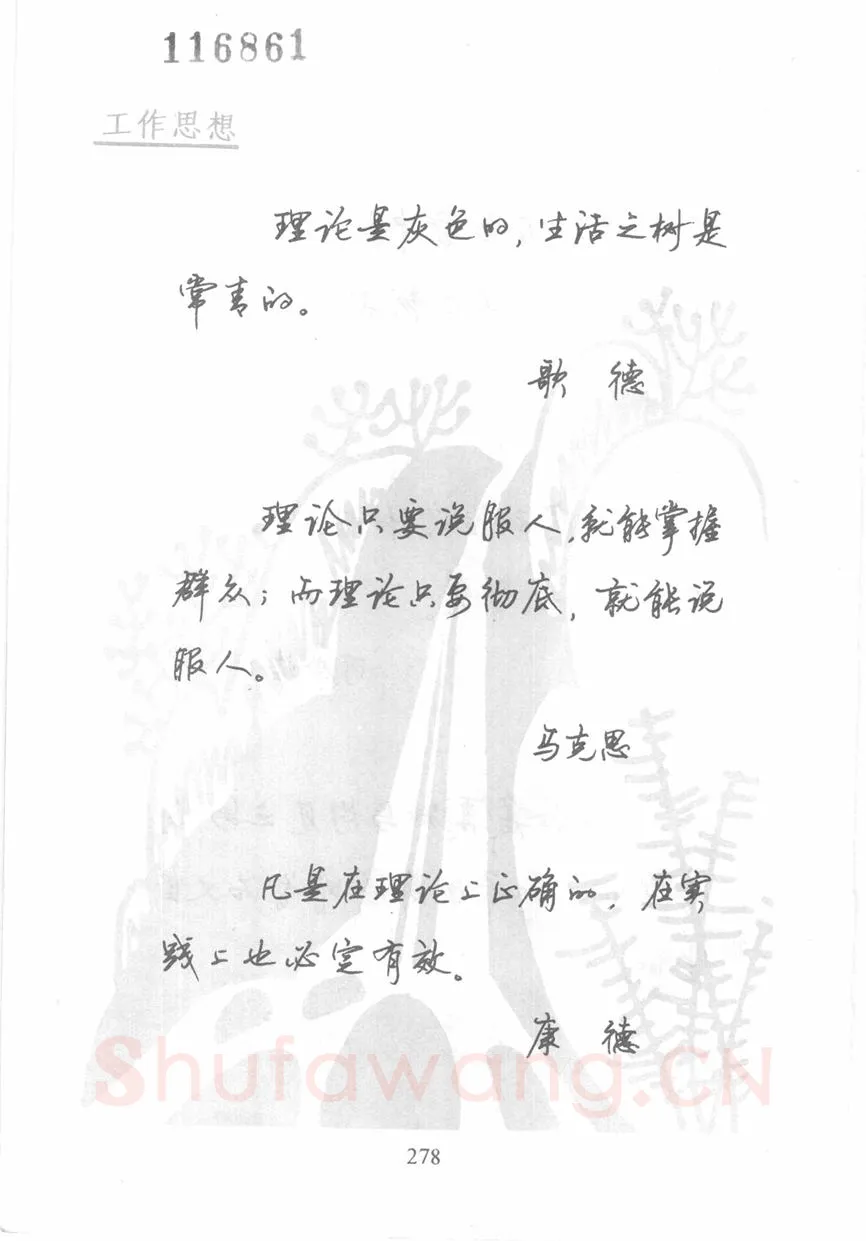 116861
工作思想
理论是灰色的，生活之树是
常青的。
歌 德
理论只要说服人，就能掌握
群众；而理论只要彻底，就能说
服人。
马克思
凡是在理论上正确的，在实
践上也必定有效。
康 德
Shufawang.CN
278